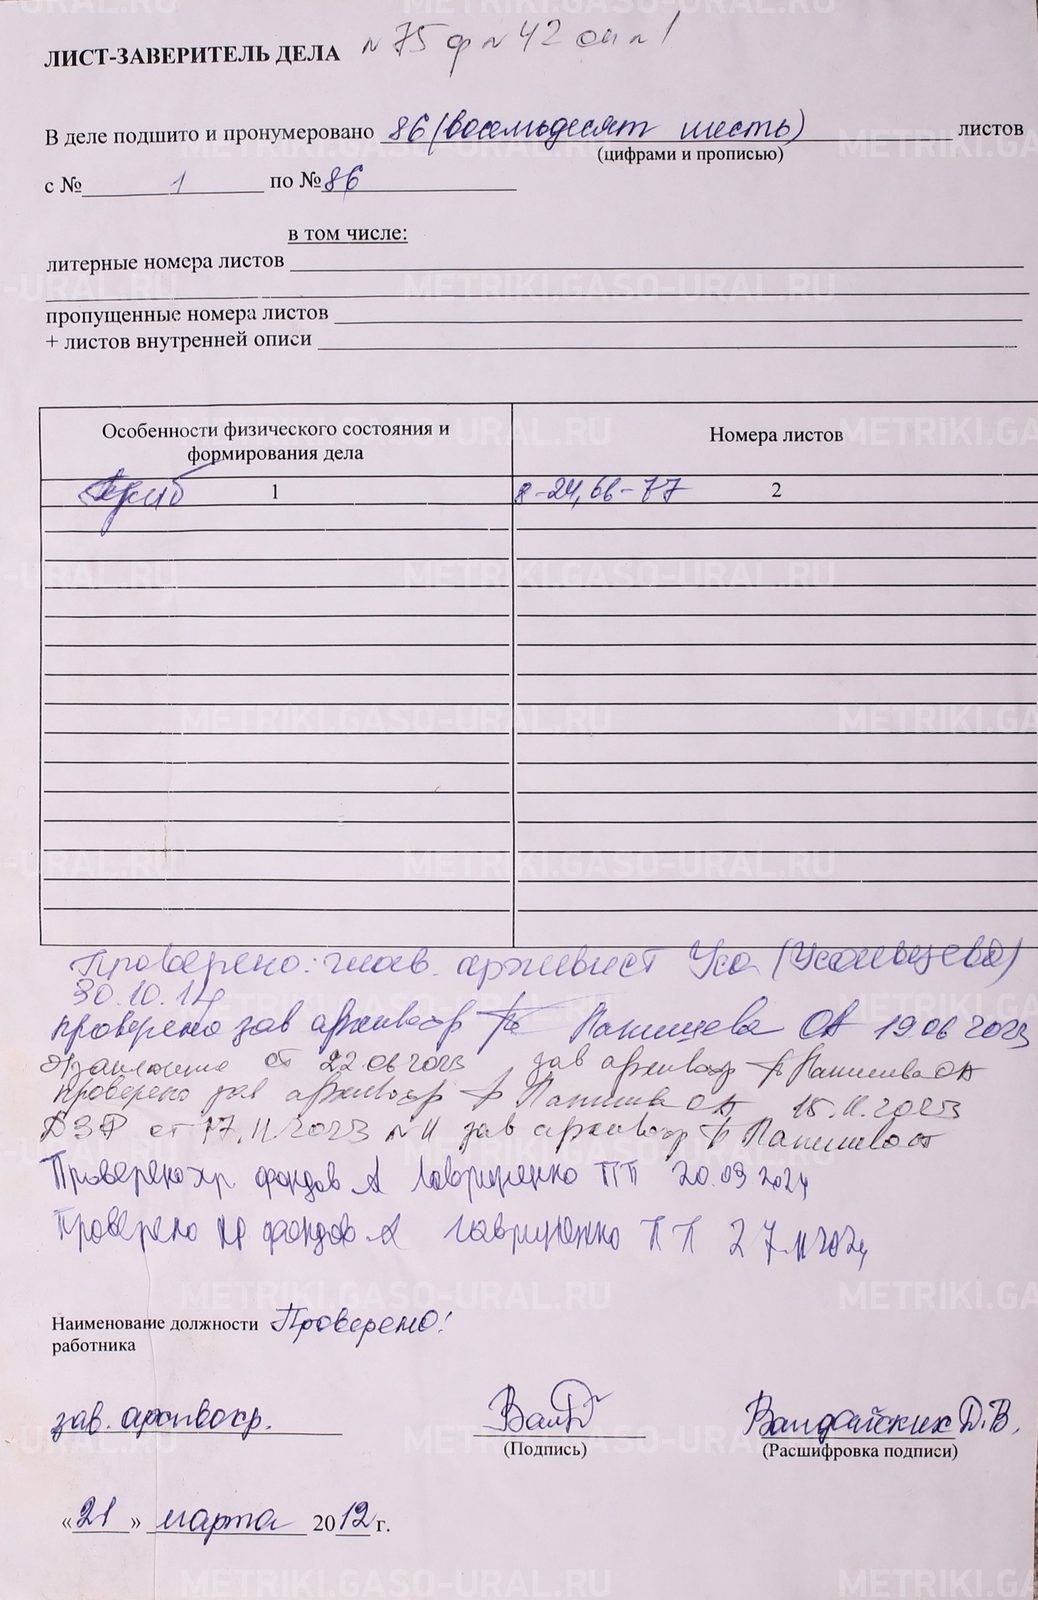 ЛИСТ-ЗАВЕРИТЕЛЬ ДЕЛА № 75 ф № 42 оп № 1
В деле подшито и пронумеровано 86 (восемьдесят шесть) листов
(цифрами и прописью)
с № 1 по № 86
в том числе:
литерные номера листов
пропущенные номера листов
+ листов внутренней описи
Особенности физического состояния и формирования дела
Номера листов
1
8-24, 66-77 2
Проверено: глав. архивист Уса (Усольцева)
30.10.14
Проверено зав архивохр Панищева ОА 19.06 2023
от 22.06 2023 зав архивохр
Проверено зав архивохр 15.11.2023
от 17.11.2023 № 11 зав архивохр
Проверено хр фондов Гавриленко ПП 20.09 2024
Проверено хр фондов Гавриленко ПП 27.11 2024
Наименование должности Проверено!
работника
зав. архивохр. Валд Валдайских Д.В.
(Подпись) (Расшифровка подписи)
«21» марта 2012 г.
METRIKI.GASO-URAL.RU